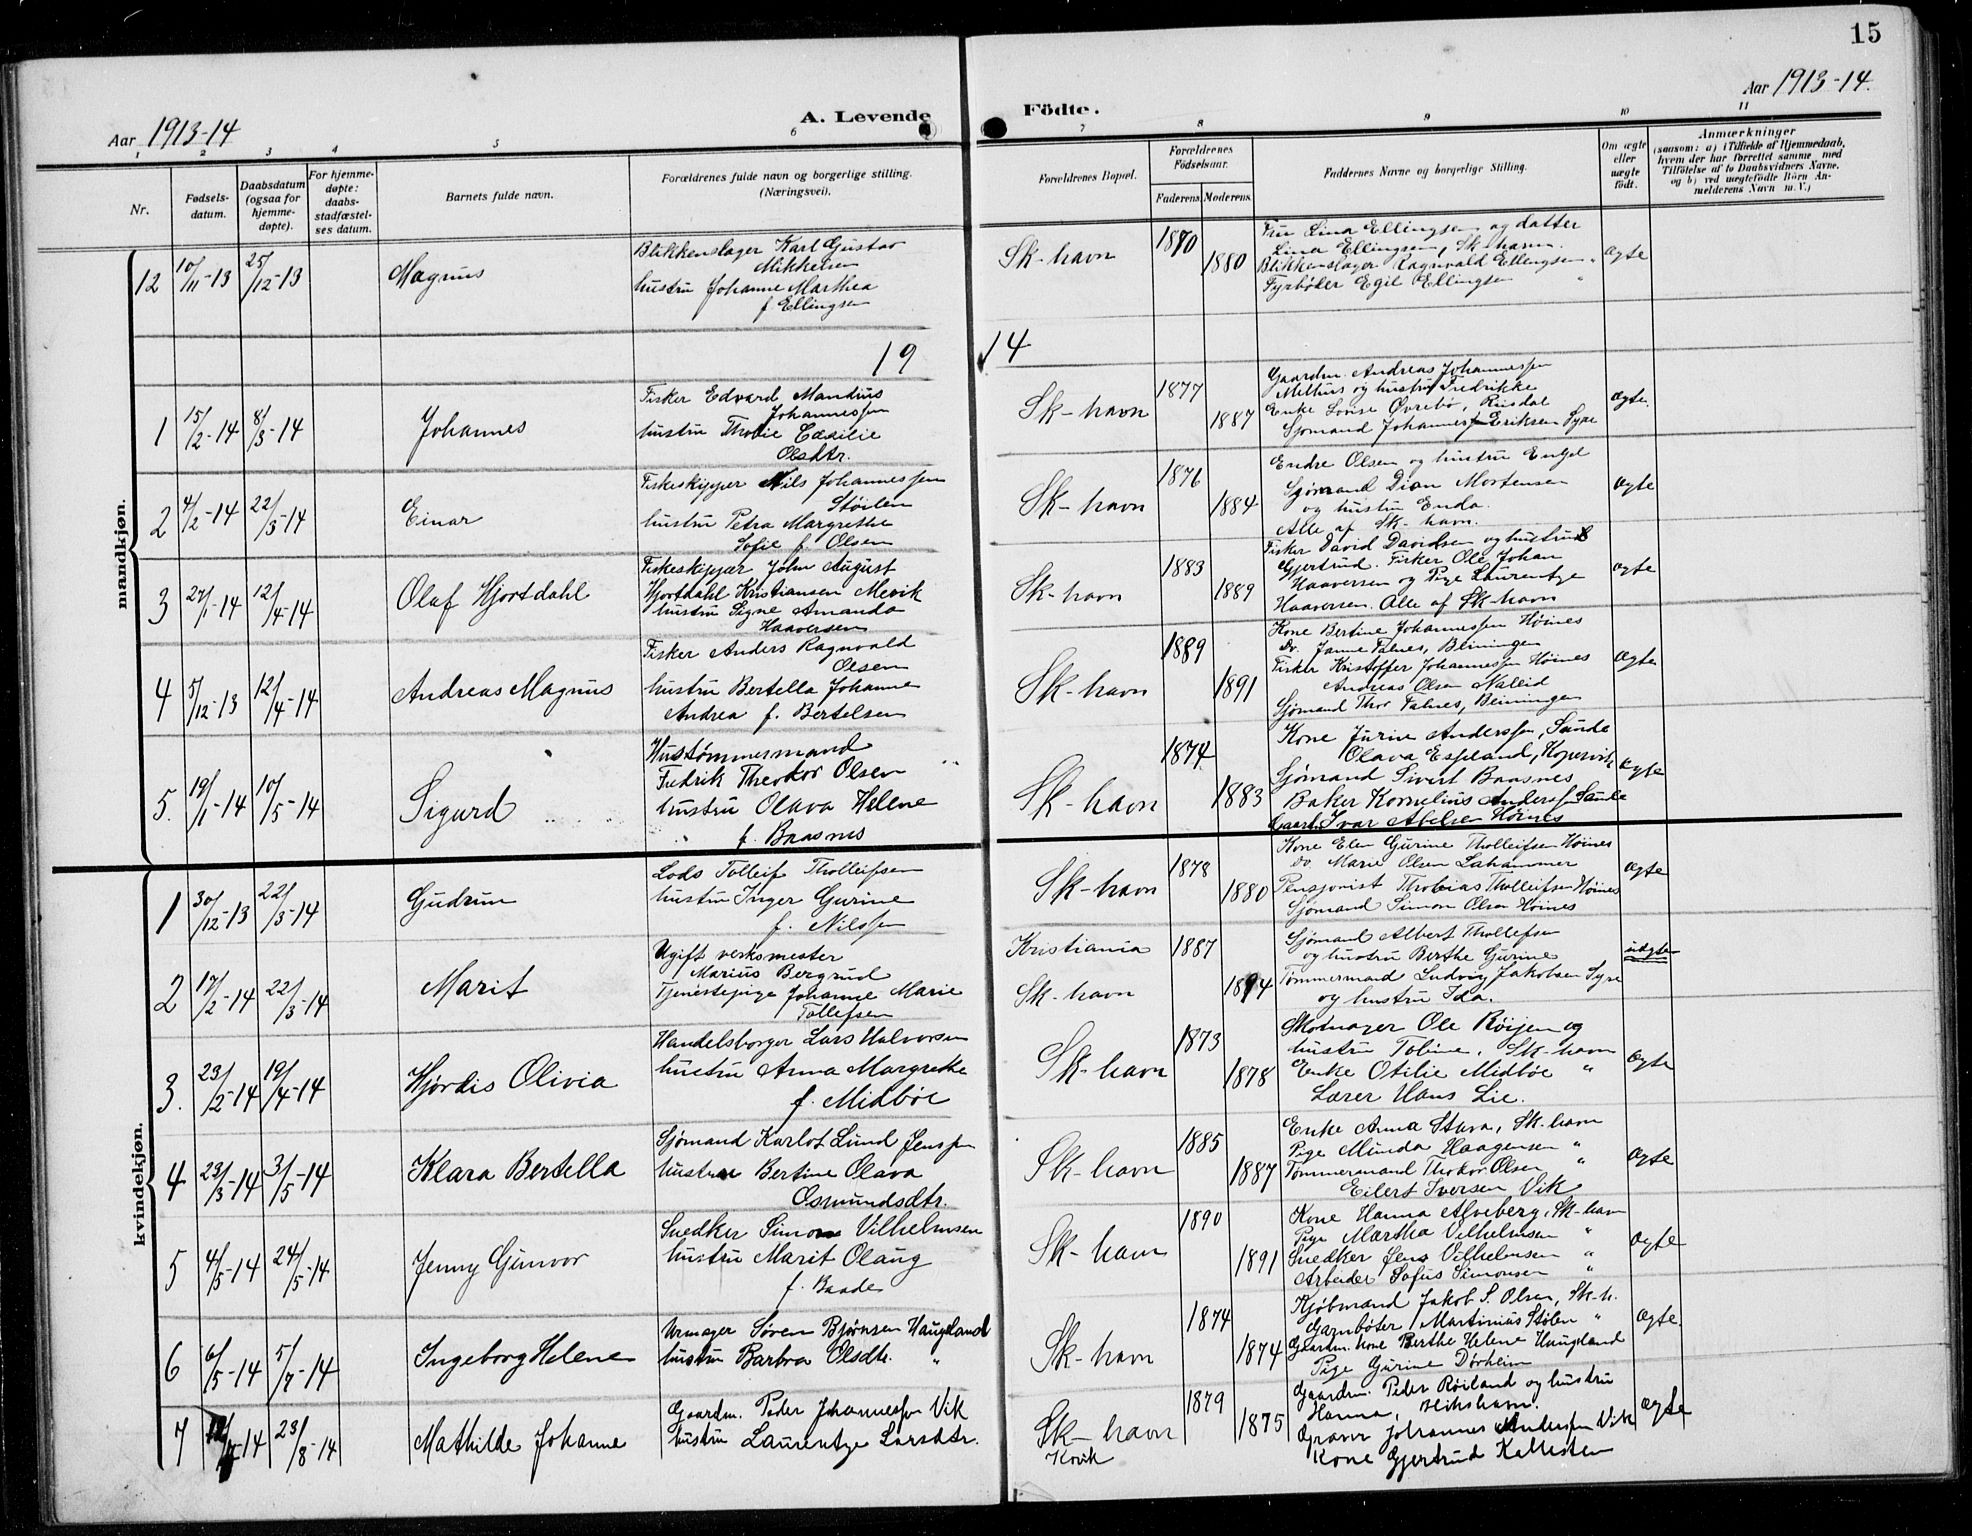 15
Aar 1913-14
A. Levende Födte.
Aar 1913-14.
1 2 3 4 5 6 7 8 9 10 11
Nr.
Fødsels-datum.
Daabsdatum (ogsaa for hjemme-døpte).
For hjemme-døpte: daabs-stadfæstel-ses datum.
Barnets fulde navn.
Forældrenes fulde navn og borgerlige stilling. (Næringsvei).
Forældrenes Bopæl.
Forældrenes Födselsaar.
Faderens Moderens
Faddernes Navne og borgerlige Stilling.
Om ægte eller uægte födt.
Anmærkninger
(saasom: a) i Tilfælde af Hjemmedaab,
hvem der har forrettet samme med
Tilföielse af to Daabsvidners Navne.
og b) ved uægtefödte Börn An-
melderens Navn m. V.)
mandkjøn.
12 10/11-13 25/12-13 Magnus
Blikkenslager Karl Gustav
Mikkelsen
hustru Johanne Marthea
f. Ellingsen
Sk-havn 1870 1880
Fru Lina Ellingsen og datter
Lina Ellingsen, Sk-havn.
Blikkenslager Ragnvald Ellingsen "
Fyrbøter Egil Ellingsen "
ægte
19 14
1 15/2-14 8/3-14 Johannes
Fisker Edvard Mandius
Johannessen
hustru Thodie Cæcilie
Olsdtr.
Sk-havn 1877 1887
Gaardm. Andreas Johannessen
Melhus og hustru Fredrikke
Enke Lovise Øvrebø, Risdal
Sjømand Johannes Eriksen Syre
ægte.
2 4/2-14 22/3-14 Einar
Fiskeskipper Nils Johannessen
Støilen
hustru Petra Margrethe
Sofie f. Olsen
Sk-havn 1876 1884
Endre Olsen og hustru Engel
Sjømand Dian Mortensen
og hustru Enda.
Alle af Sk-havn.
ægte
3 27/1-14 12/4-14 Olaf Hjortdahl
Fiskeskipper John August
Hjortdahl Kristiansen Mevik
hustru Signe Amanda
Haaversen
Sk-havn 1883 1889
Fisker David Davidsen og hustru
Gjertrud. Fisker Ole Johan
Haaversen og Pige Laurentze
Haaversen. Alle af Sk-havn
ægte
4 5/12-13 12/4-14 Andreas Magnus
Fisker Anders Ragnvald
Olsen
hustru Bertella Johanne
Andrea f. Bertelsen
Sk-havn 1889 1891
Kone Bertine Johannessen Høines
Do. Janne Falnes, Beiningen
Fisker Kristoffer Johannessen Høines
Andreas Olsen
Sjømand Thor Falnes, Beiningen
ægte
5. 19/1-14 10/5-14 Sigurd
Hustømmermand
Fedrik Theodor Olsen
hustru Olava Helene
f. Braasnes
Sk-havn 1874. 1883
Kone Jurine Anderssen, Sunde
Olava Espeland, Kopervik
Sjømand Sivert Baasnes
Baker Kornelius Anderssen Sunde
Gaardm. Ivar Abelsen Høines
ægte
kvindekjøn.
1 30/12-13 22/3-14 Gudrun
Lods Tolleif Tholleifsen
hustru Inger Gurine
f. Nilssen
Sk-havn 1878 1880
Kone Elen Gurine Tholleifsen Høines
Do. Marie Olsen Lahammer
Pensjonist Thobias Tholleifsen Høines
Sjømand Simon Olsen Høines
ægte
2 17/2-14 22/3-14 Marit
Ugift verksmester
Marius Bergrud
Tjenestepige Johanne Marie
Tollefsen
Kristiania 1887
Sk-havn 1894
Sjømand Albert Thollefsen
og hustru Berthe Gurine
Tømmermand Ludvig Jakobsen Syre
og hustru Ida.
uægte
3. 23/2-14 19/4-14 Hjørdis Olivia
Handelsborger Lars Halvorsen
hustru Anna Margrethe
f. Midbøe
Sk-havn 1873 1878
Skomager Ole Røijen og
hustru Tobine, Sk-havn
Enke Otilie Midbøe "
Lærer Hans Lie.
ægte
4 23/3-14 3/5-14 Klara Bertella
Sjømand Karlot Lund Jenssen
hustru Bertine Olava
Osmundsdtr.
Sk-havn 1885 1887
Enke Anna Stava, Sk-havn
Pige Minda Haagensen "
Tømmermand Thokor Olsen "
Eilert Iversen Vik
ægte
5 4/5-14 24/5-14 Jenny Gunvor
Snedker Simon Vilhelmsen
hustru Marit Olaug
f. Baade
Sk-havn 1890 1891
Kone Hanna Alveberg, Sk-havn
Pige Martha Vilhelmsen "
Snedker Jens Vilhelmsen "
Arbeider Sofus Simonsen "
ægte
6 6/5-14 5/7-14 Ingeborg Helene
Urmager Søren Bjørnsen Haugeland
hustru Barbra Olsdtr. "
Sk-havn 1874 1874
Kjøbmand Jakob S. Olsen, Sk-h.
Garnbøter Martinius Stølen "
Gaardm. kone Berthe Helene Haugeland
Pige Gurine Dørheim
ægte.
7 -14 23/8-14 Mathilde Johanne
Gaardm. Peder Johannessen Vik
hustru Laurentze Larsdtr.
Sk-havn 1879 1875
Kovik
Gaardm. Peder Røiland og hustru
Hanna, Blikshavn.
Graver Johannes Anderssen Vik
Kone Gjertrud Kallesten
ægte